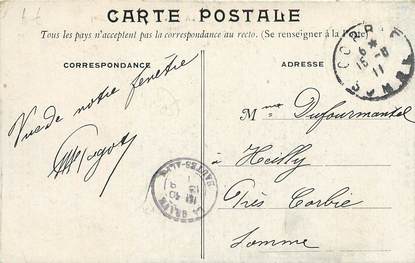 CARTE POSTALE
Tous les pays n'acceptent pas la correspondance au recto. (Se renseigner à la Poste).
CORRESPONDANCE
ADRESSE
Vue de notre fenêtre
Mme Dufourmantel
à Heilly
Près Corbie
Somme
CORBIE
SOMME
LA GRAVE
HAUTES-ALPES